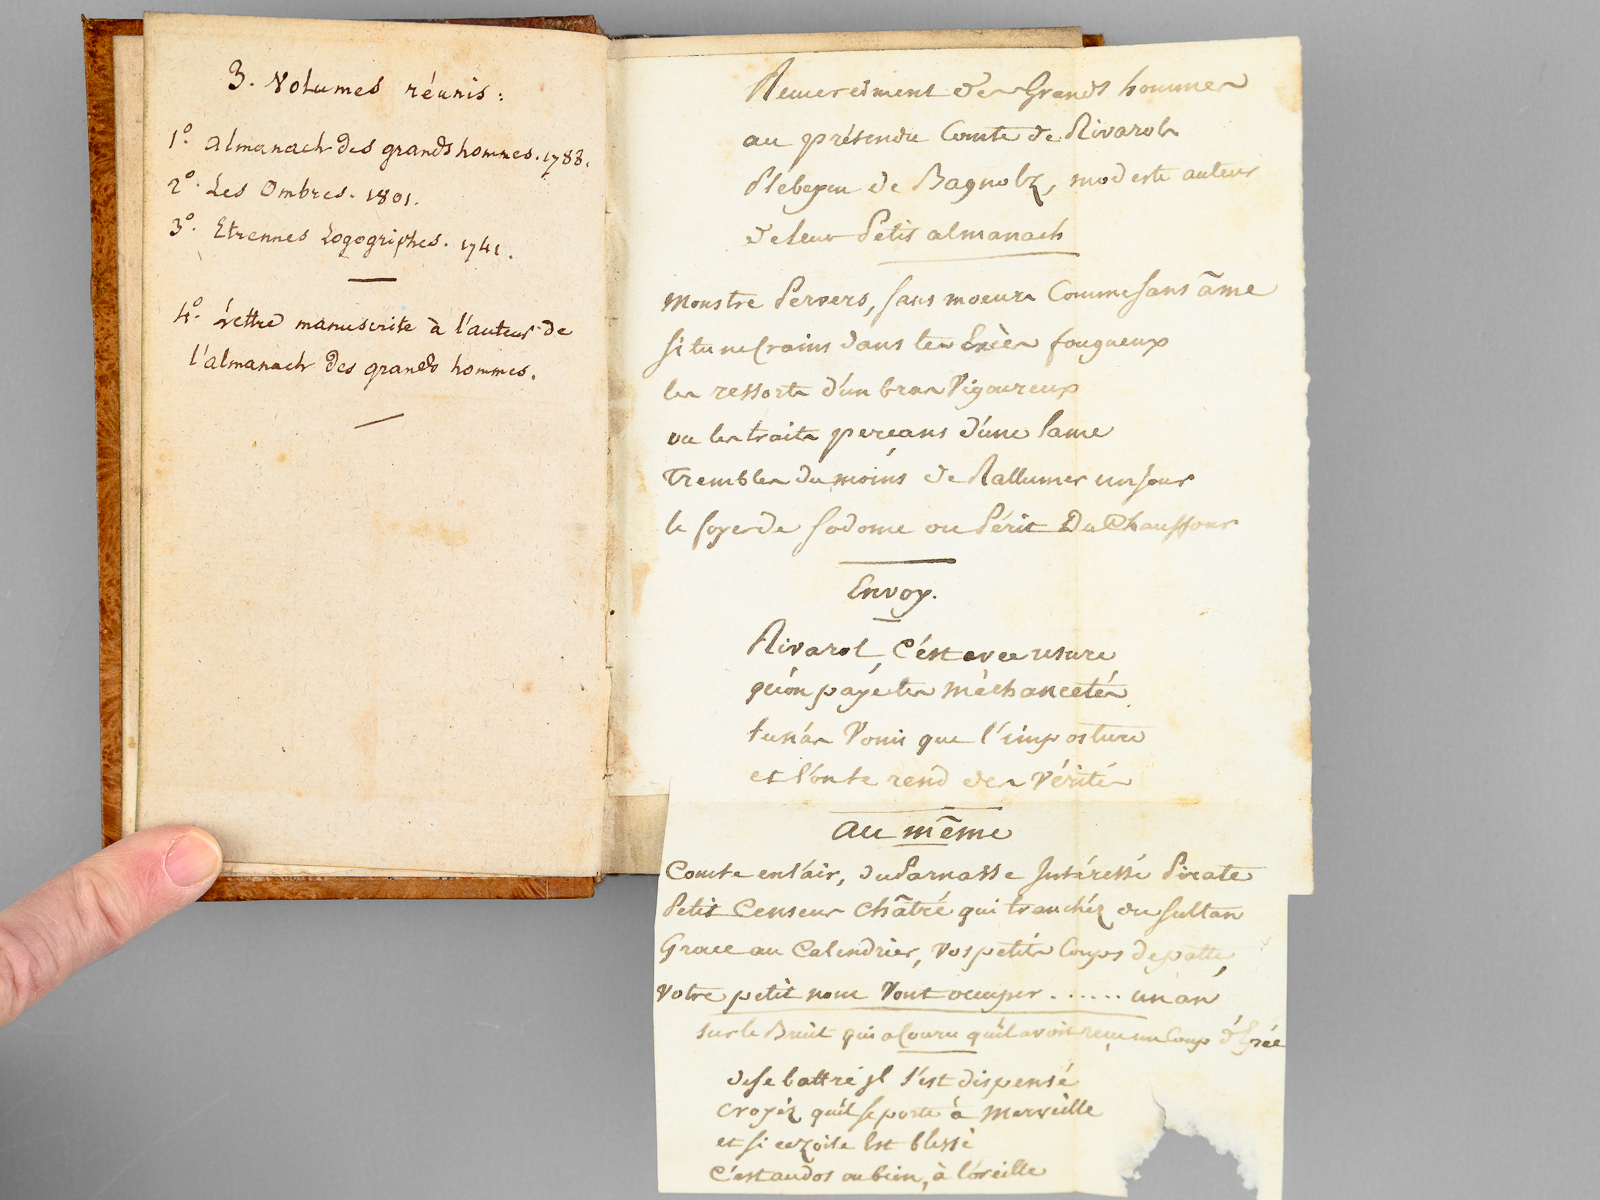 3. Volumes réunis:
1° almanach des grands hommes. 1788.
2° Les Ombres. 1801.
3° Etrennes Logogriphes. 1741.
4° Lettre manuscrite à l'auteur de
l'almanach des grands hommes.
Remerciment des Grands hommes
au prétendu Comte de Rivarol
Plebeyen de Bagnolz, modeste auteur
de leur Petit almanach
Monstre Pervers, sans moeurs Comme sans âme
si tu ne Crains dans tes Excès fougueux
les ressorts d'un bras Vigoureux
ou les traits perçans d'une lame
Trembles du moins de Rallumer un jour
le foyer de Sodome ou Périt Du Chauffour
Envoy.
Rivarol, C'est avec usure
qu'on paye tes méchancetés
tu n'as Vomi que l'imposture
et l'on te rend des Vérités
au même
Comte en l'air, du Parnasse Intéressé Pirate
Petit Censeur Châtré qui tranchéz du sultan
Grace au Calendrier, Vos petits Coups de patte,
Votre petit nom Vont occuper ...... un an
sur le Bruit qui a Couru qu'il avoit reçu un Coup d'Epée
de se battre jl s'est dispensé
croyéz qu'il se porte à Merveille
et si ce Zoile Est blessé
C'est au dos ou bien, à l'oreille